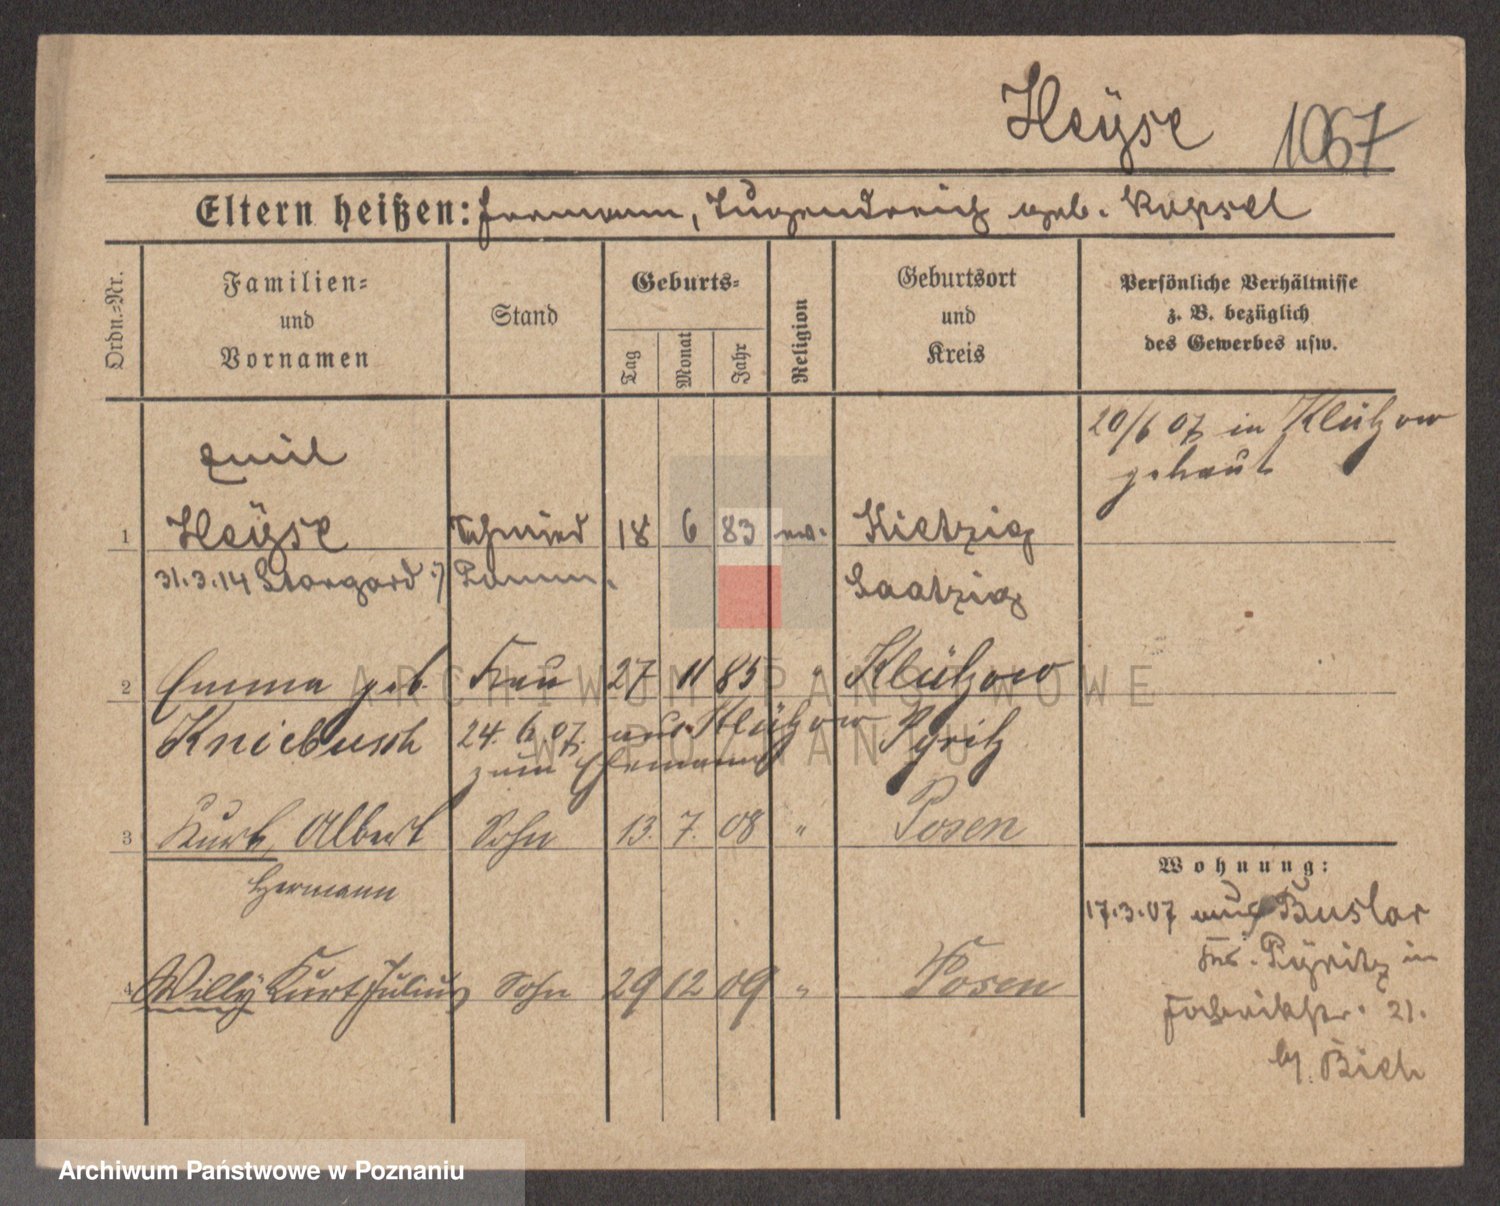 Heÿse 1067
Eltern heißen: Hermann, Tugendreich geb. Kopsel
Ordn.=Nr.
Familien=
und
Vornamen
Stand
Geburts=
Tag
Monat
Jahr
Religion
Geburtsort
und
Kreis
Persönliche Verhältnisse
z. B. bezüglich
des Gewerbes usw.
20/6 07 in Klützow
getraut
Emil
1 Heÿse Schmied 18 6 83 ev. Kietzig
31.3.14 Stargard i/ Pomm. Saatzig
2 Emma geb. Frau 27 11 85 " Klützow
Kniebusch 24. 6. 07. aus Klützow Pyritz
zum Ehemann
3 Kurt, Albert Sohn 13. 7. 08 " Posen
Hermann
4 Willÿ Kurt Julius Sohn 29 12 09 " Posen
Wohnung:
17.3.07 aus Buslar
Krs. Pÿritz in
Fabrikstr. 21.
by. Bieh
ARCHIWUM PAŃSTWOWE
W POZNANIU
Archiwum Państwowe w Poznaniu